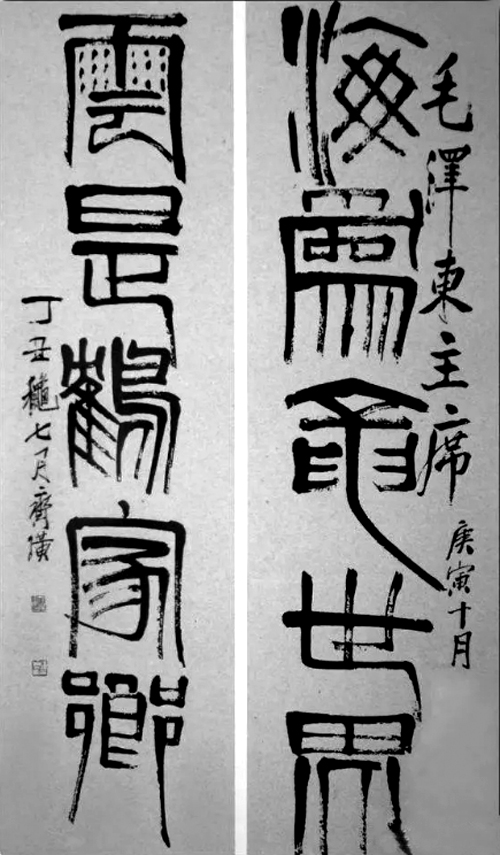 毛澤東主席
庚寅十月
海爲龍世界
雲是鶴家鄉
丁丑龝七月齊璜